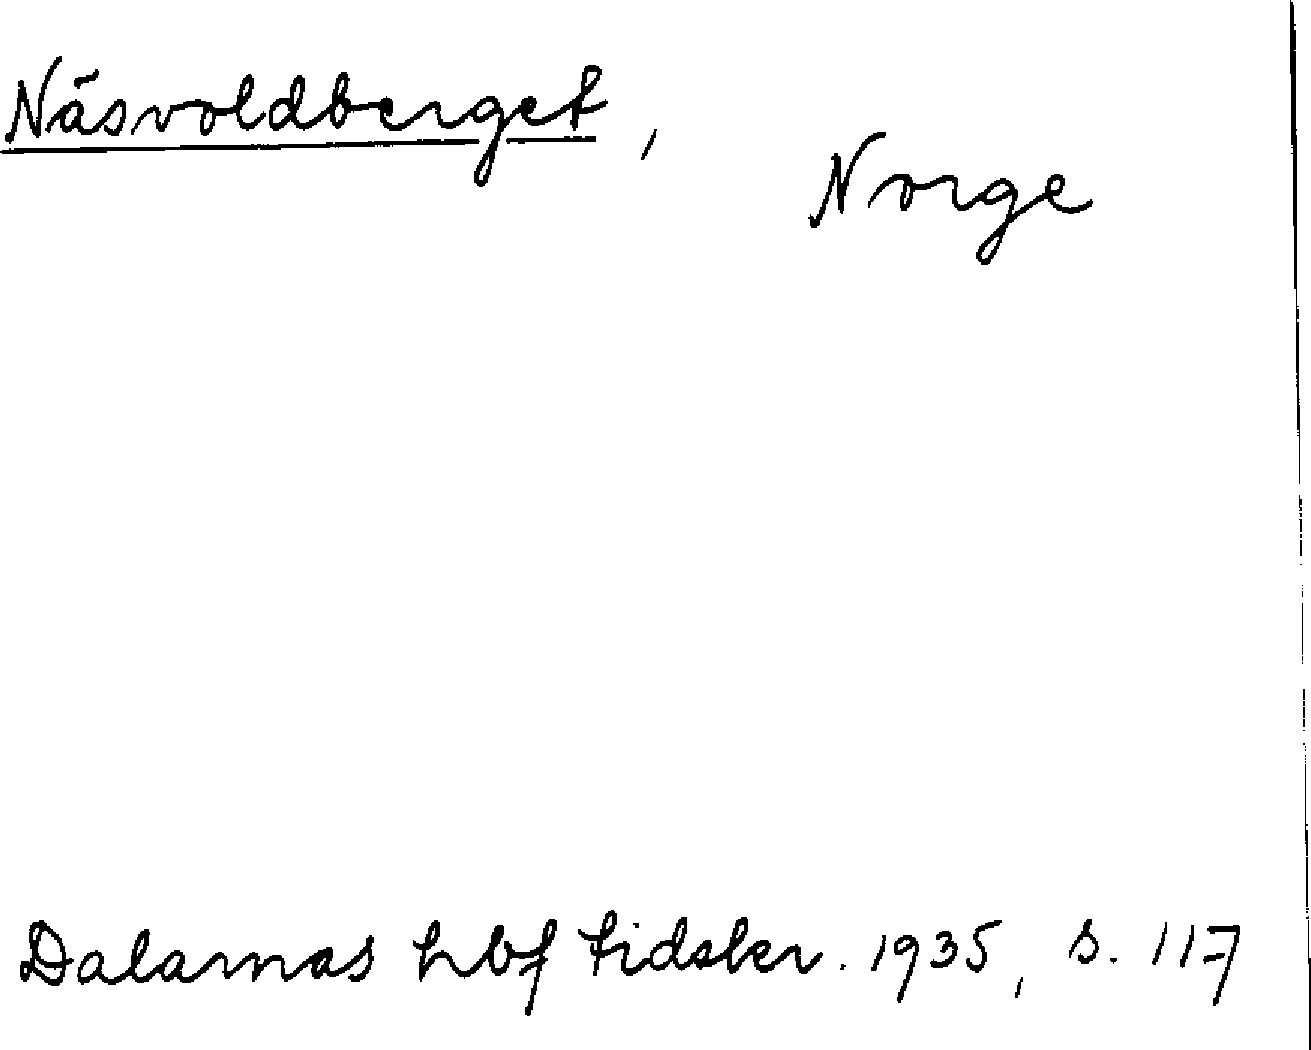 Näsvoldberget,
Norge
Dalarnas hbf tidskr. 1935, s. 117